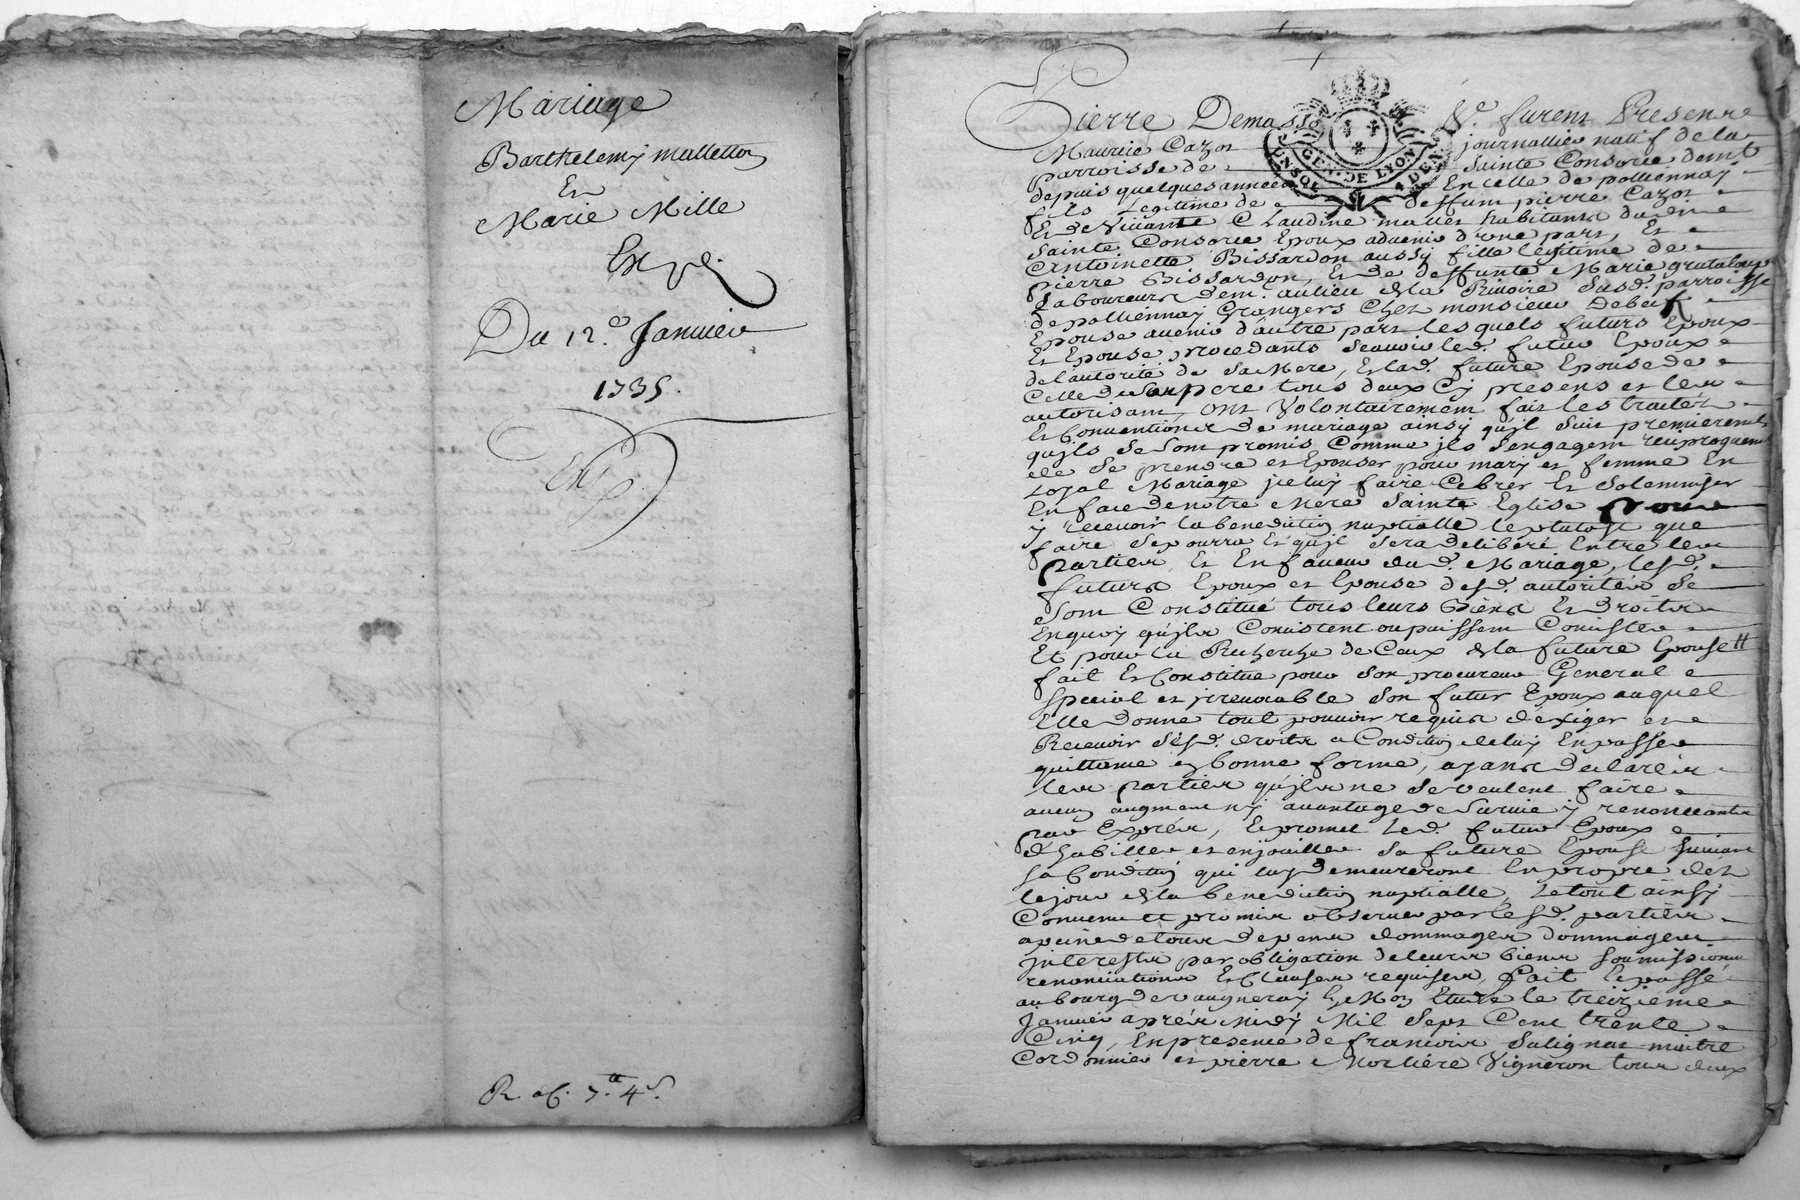 Mariage
Barthelemy malletton
Et
Marie Mille
Du 12e. Janvier
1735.
Pierre Demas Ve. furent Presens
Maurice Cazot journallier natif de la
parroisse de Sainte Consorce demt
depuis quelques années En celle de pollionnay
fils Legitime de deffunt pierre Cazot
Et de Vivante Claudine mattes habitants dud.
Sainte Consorce Epoux advenir d'une part, Et
Antoinette Bissardon aussy fille legitime de
pierre Bissardon, Et de deffunte Marie grataloup
Laboureurs dem. au lieu de la Rivoire Susd. parroisse
de pollionnay Grangers Chez monsieur
Epouse avenir d'autre part lesquels futurs Epoux
Et Epouse procedants Scavoir led. futur Epoux
de l'autorité de Sa Mere, Et lad. future Epouse de
Celle du Son pere tous deux Cy presens et les
autorisant, ont Volontairement fait les traités
Et Conventions de mariage ainsy qu'il Suit premierement
qu'jls Se Sont promis Comme jls Sengagent reciproquement
de Se prendre et Epouser pour mary et femme En
Loyal Mariage jceluy faire Celebrer Et Solemniser
En face de notre Mere Sainte Eglise pour
y recevoir la benediction nuptialle le plutost que
faire Se pourra Et qu'jl Sera deliberé Entre les
parties, Et En faveur dud. Mariage, lesd.
futurs Epoux et Epouse desd. autorités Se
Sont Constitué tous leurs Biens Et droits
En quoy qu'jls Consistent ou puissent Consister
Et pour la Recherche de Ceux de la future Epouse #
fait Et Constitue pour Son procureur General
Special et jrrevocable Son futur Epoux auquel
Elle donne tout pouvoir requis dexiger et
Recevoir Sesd. droits a Condition de luy En passer
quittance en bonne forme, ayants declarés
les parties qu'jls ne Se veulent faire
aucun augment ny avantage de Survie y renonceants
par Exprés, Et promet led. futur Epoux
d'habiller et enjoailler Sa future Epouse Suivant
Sa Condition qui luy demeureront En propre dés
le jour de la benediction nuptialle, Le tout ainsy
Convenu et promis observer par lesd. parties
a peine de tous depens dommages
jnterests par obligation de leurs biens Soumissions
renonciations Et Clauses requises, fait Et passé
au bourg de vaugneray En Mon Etude le treizieme
Janvier aprés Midy Mil Sept Cent trente
Cinq, En presence de francois Salignat maitre
Cordonnier et pierre Morliére Vigneron tous deux